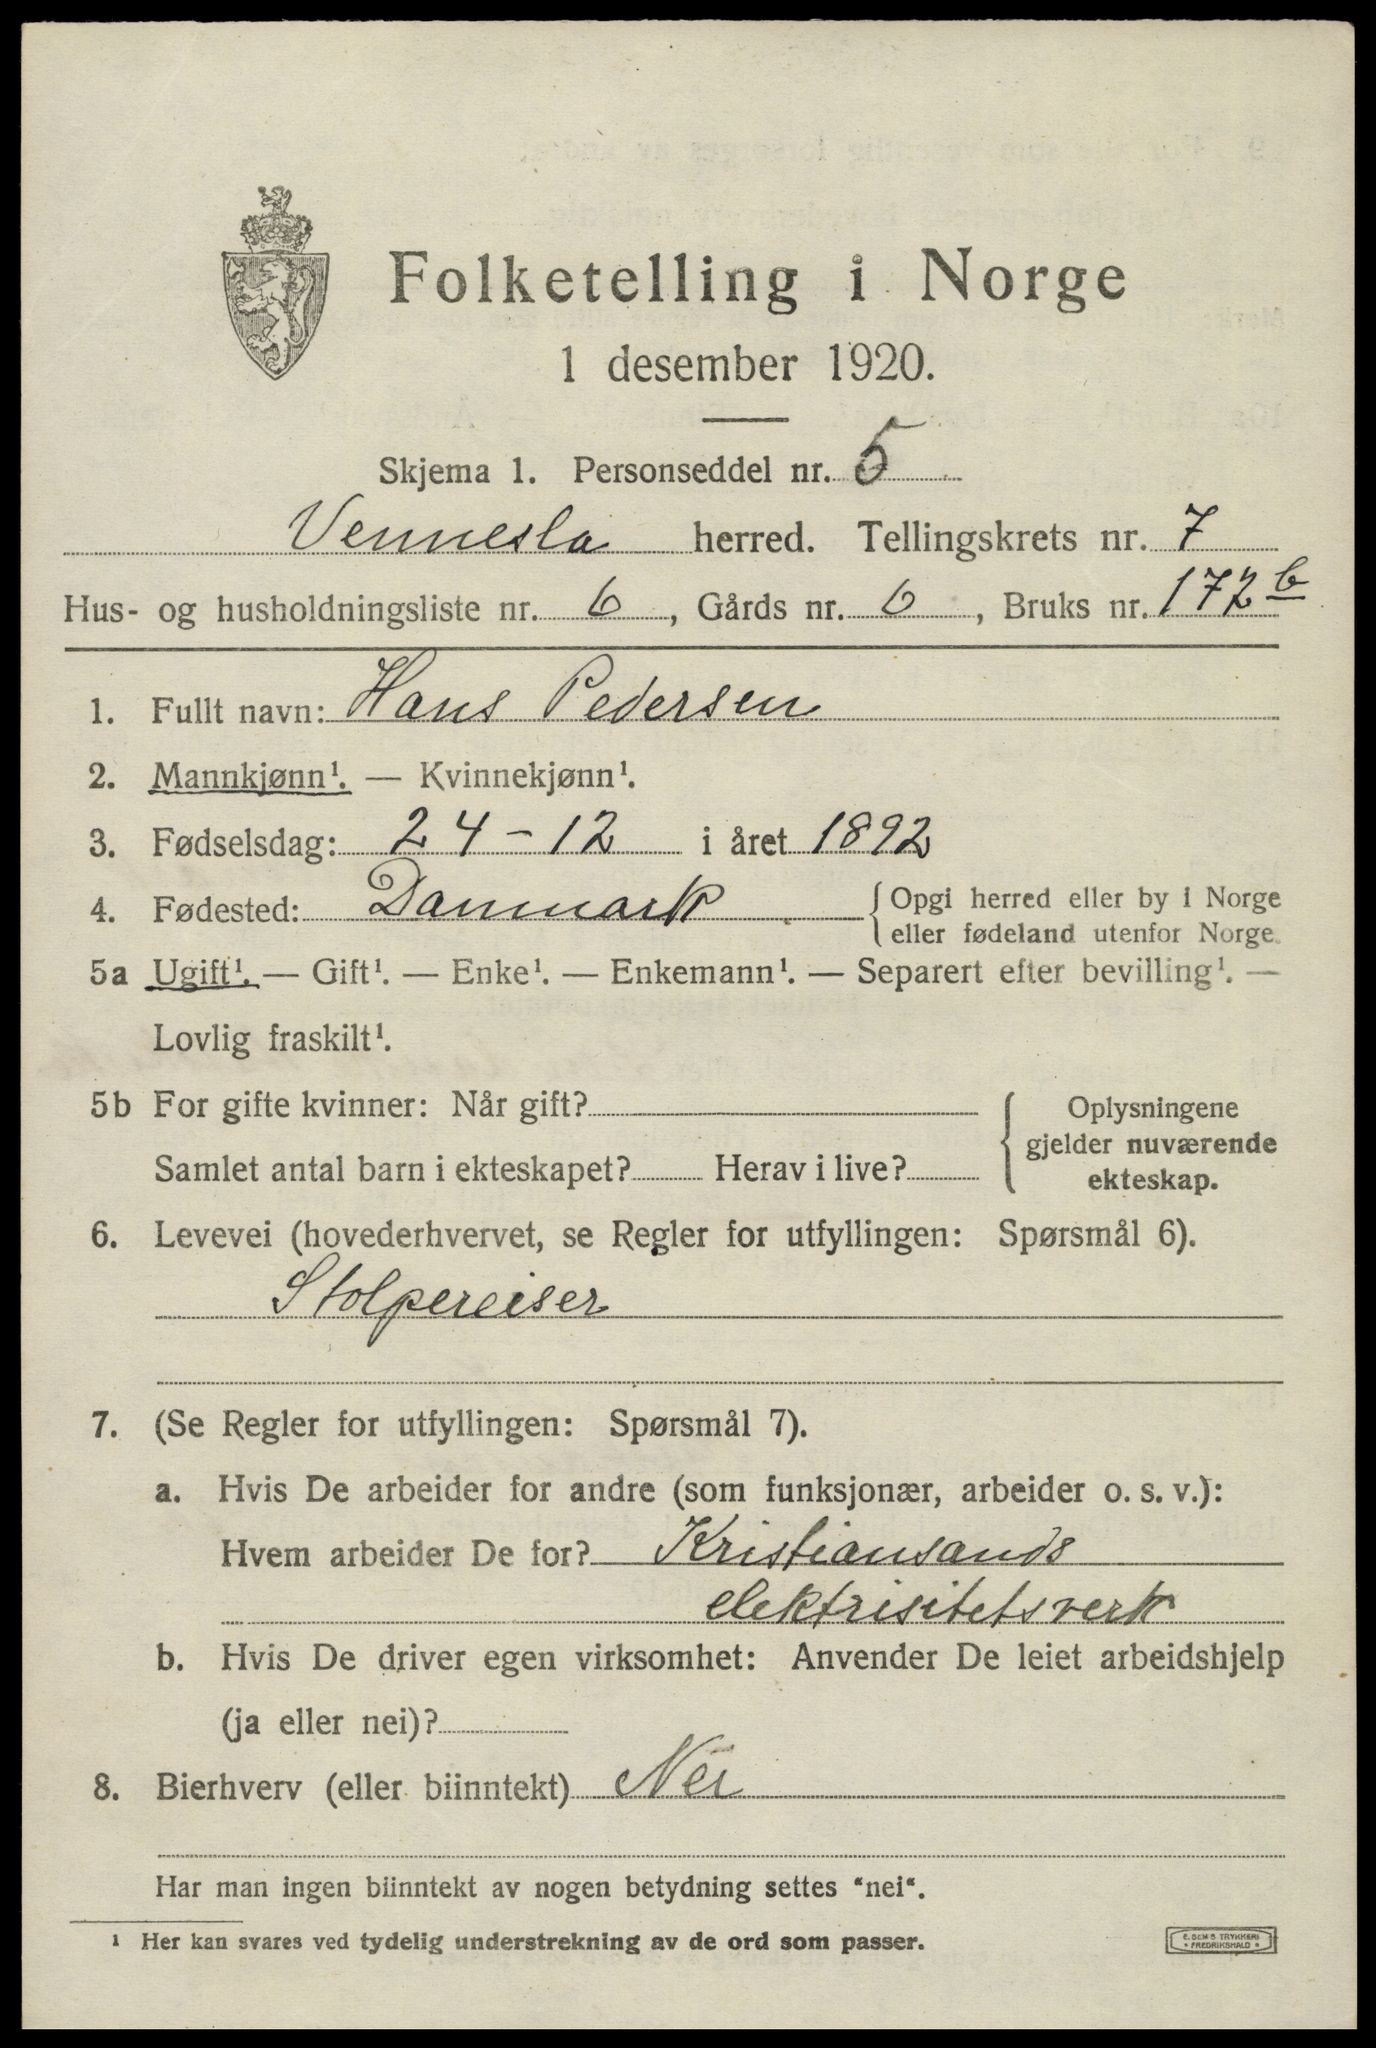 Folketelling i Norge
1 desember 1920.
Skjema 1. Personseddel nr. 5
Vennesla herred. Tellingskrets nr. 7
Hus- og husholdningsliste nr. 6, Gårds nr. 6, Bruks nr. 172 b
1. Fullt navn: Hans Pedersen
2. Mannkjønn¹. — Kvinnekjønn¹.
3. Fødselsdag: 24 - 12 i året 1892
4. Fødested: Danmark {Opgi herred eller by i Norge
eller fødeland utenfor Norge.
5a Ugift¹. — Gift¹. — Enke¹. — Enkemann¹. — Separert efter bevilling¹. —
Lovlig fraskilt¹.
5b For gifte kvinner: Når gift? { Oplysningene
gjelder nuværende
Samlet antal barn i ekteskapet? Herav i live? ekteskap.
6. Levevei (hovederhvervet, se Regler for utfyllingen: Spørsmål 6).
Stolpereiser
7. (Se Regler for utfyllingen: Spørsmål 7).
a. Hvis De arbeider for andre (som funksjonær, arbeider o. s. v.):
Hvem arbeider De for? Kristiansands
elektrisitetsverk
b. Hvis De driver egen virksomhet: Anvender De leiet arbeidshjelp
(ja eller nei)?
8. Bierhverv (eller biinntekt) Nei
Har man ingen biinntekt av nogen betydning settes "nei".
¹ Her kan svares ved tydelig understrekning av de ord som passer.
E. SEMS TRYKKERI
FREDRIKSHALD